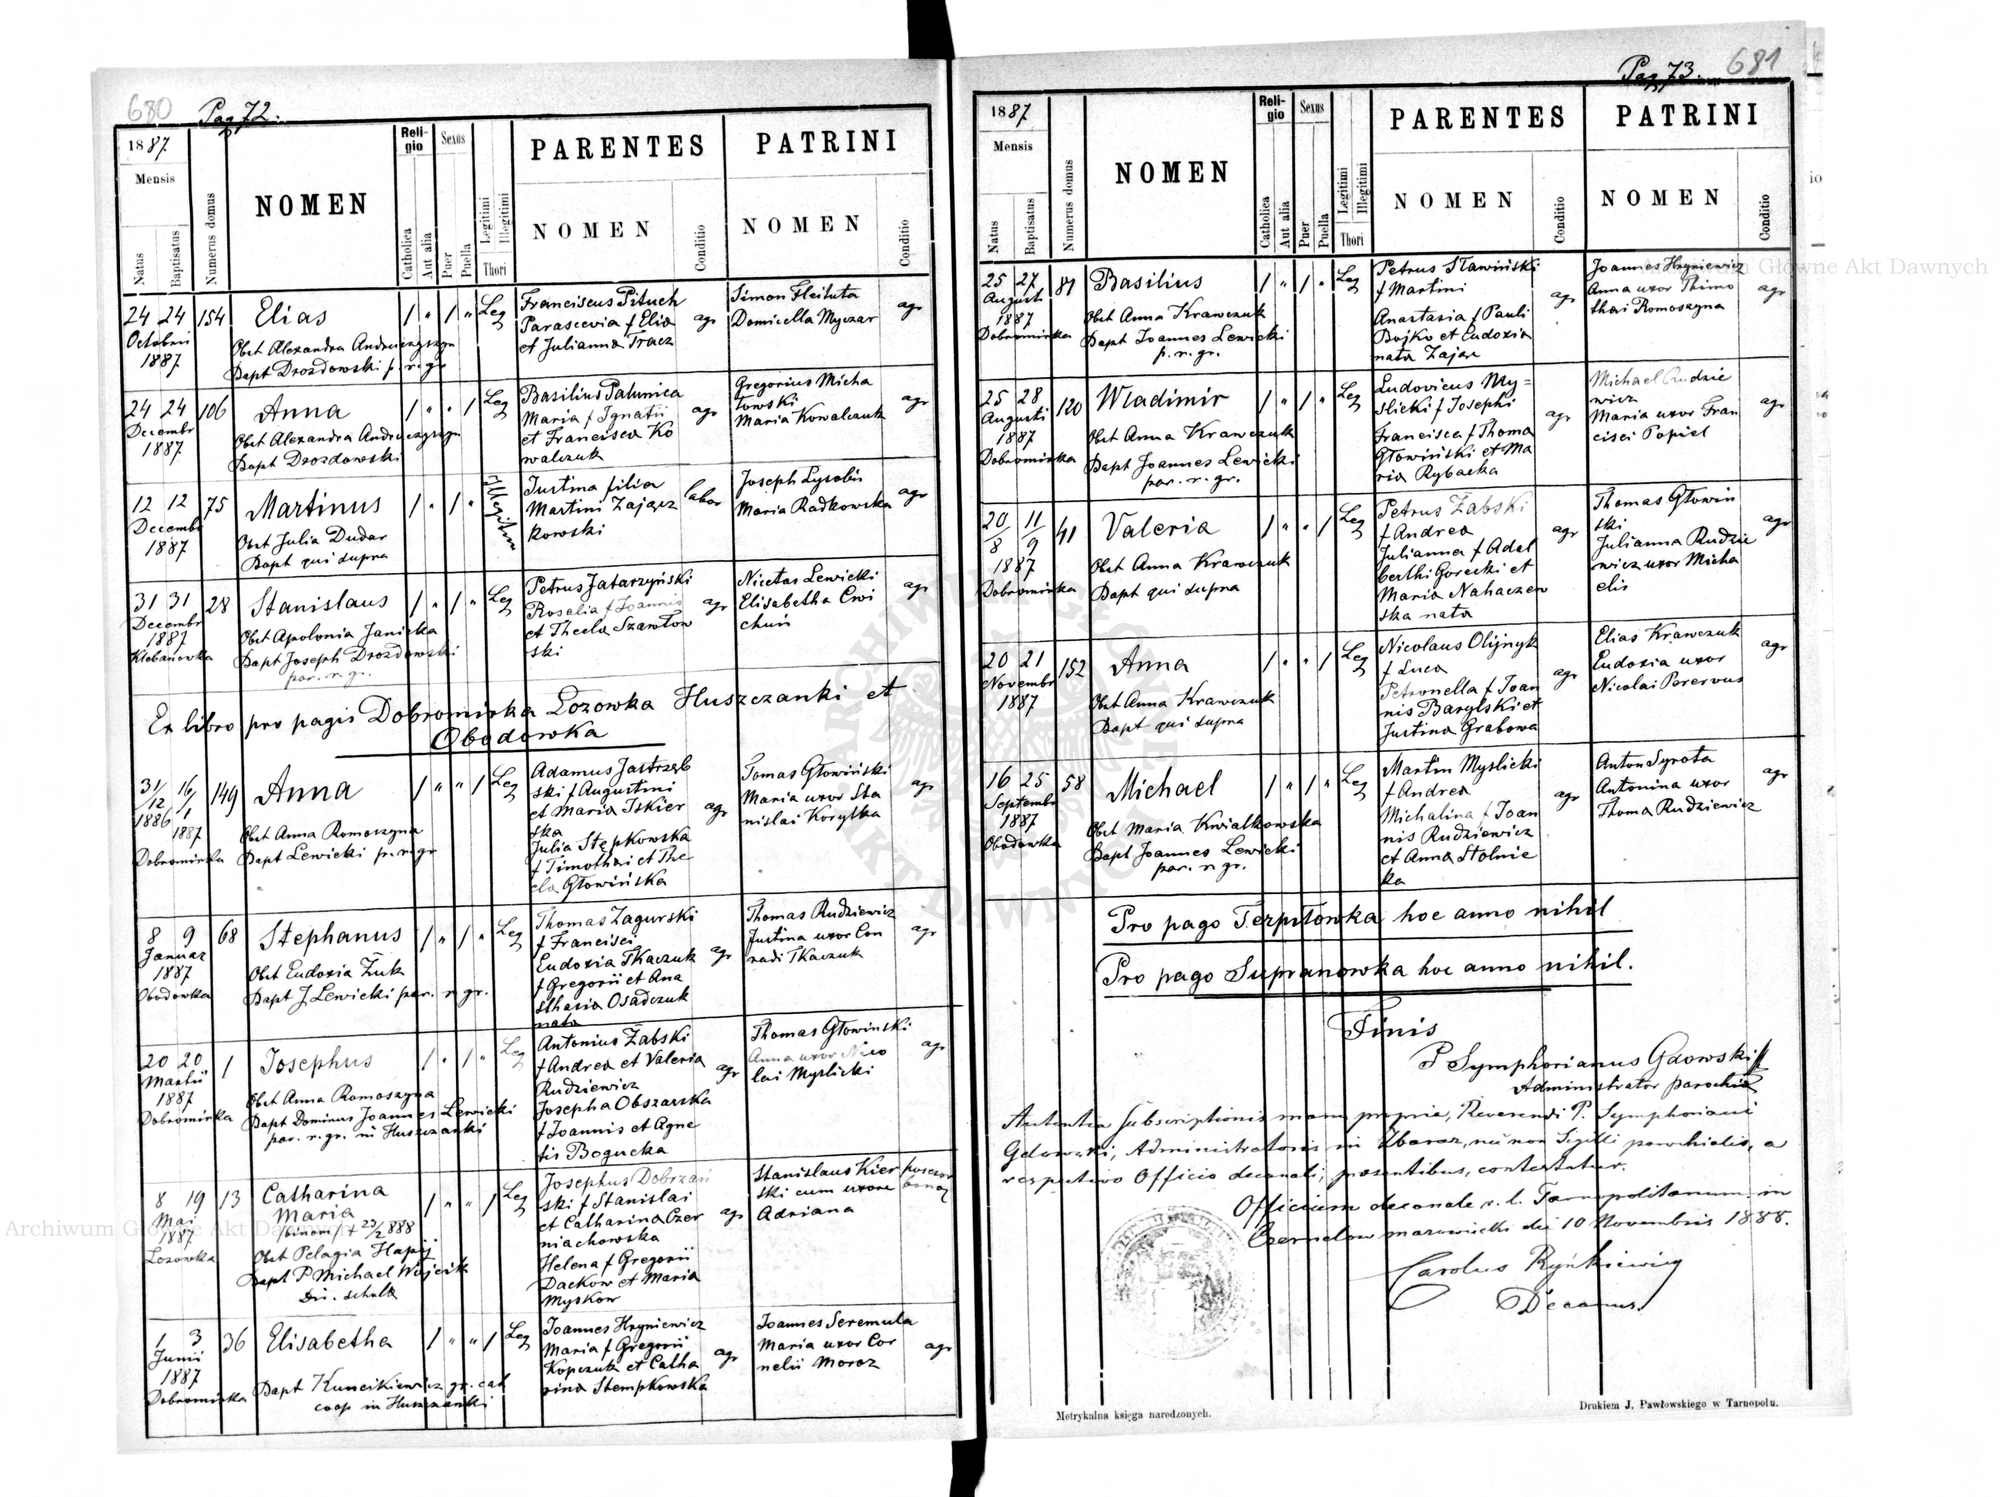 680 Pag 72.
1887
Mensis
Natus
Baptisatus
Numerus domus
NOMEN
Religio
Catholica
Aut alia
Sexus
Puer
Puella
Legitimi
Illegitimi
Thori
PARENTES
NOMEN
Conditio
PATRINI
NOMEN
Conditio
24 24 154 Elias / " / " Leg
Octobris
1887
Obst Alexandra Andruczyszyn
Bapt Drozdowski p. r. gr
Franciscus Pituch
Parascevia f Elia
et Julianna Tracz
agr
Simon Fleituta
Domicella Myczar
agr
24 24 106 Anna / " " / Leg
Decembr
1887
Obst Alexandra Andruczyszyn
Bapt Drozdowski
Basilius Palunica
Maria f Ignatii
et Francisca Ko
walczuk
agr
Gregorius Micha
łowski
Maria Kowalczuk
agr
12 12 75 Martinus / " / " Illegitim
Decembr
1887
Obst Julia Dudar
Bapt qui supra
Justina filia
Martini Zającz
kowski
labor
Joseph Lysobij
Maria Radkowska
agr
31 31 28 Stanislaus / " / " Leg
Decembr
1887
Klebanowka
Obst Apolonia Janicka
Bapt Joseph Drozdowski
par. r. gr.
Petrus Jatarzyński
Rosalia f Joannis
et Thecla Szawłow
ski
agr
Nicetas Lewicki
Elisabetha Cwi
chuń
agr
Ex libro pro pagis Dobromirka Lozowka Huszczanki et
Obodowka
31/12 1886 16/1 1887 149 Anna / " " / Leg
Dobromirka
Obst Anna Romoszyna
Bapt Lewicki p. r. gr
Adamus Jastrzęb
ski f Augustini
et Maria Iskier
ska
Julia Stępkowska
f Timothei et The
cla Głowińska
agr
Tomas Głowiński
Maria uxor Sta
nislai Korytka
agr
8 9 68 Stephanus / " / " Leg
Januar
1887
Obodowka
Obst Eudoxia Żuk
Bapt J. Lewicki par. r. gr.
Thomas Zagurski
f Francisci
Eudoxia Tkaczuk
f Gregorii et Ana
sthasia Osadczuk
nata
agr
Thomas Rudziewicz
Justina uxor Con
radi Tkaczuk
agr
20 20 1 Josephus / " / " Leg
Martii
1887
Dobromirka
Obst Anna Romoszyna
Bapt Dominus Joannes Lewicki
par. r. gr. in Huszczanki
Antonius Żabski
f Andrea et Valeria
Rudziewicz
Josepha Obszarska
f Joannis et Agne
tis Bogucka
agr
Thomas Głowinski
Anna uxor Nico
lai Myslicki
agr
8 19 13 Catharina / " " / Leg
Maria
Maj
1887
Lozowka
/binom/ + 23/2 888
Obst Pelagia Hapij
Bapt P Michael Wojcik
Josephus Dobrzań
ski f Stanislai
et Catharina Czer
niachowska
Helena f Gregorii
Dackow et Maria
Myskow
agr
Stanislaus Kier
ski cum uxore
Adriana
1 3 36 Elisabetha / " " / Leg
Junii
1887
Dobromirka
Bapt Kuncikiewicz gr. cat
coop in Huszczanki
Joannes Hryniewicz
Maria f Gregorii
Kopczuk et Catha
rina Stempkowska
agr
Joannes Seremula
Maria uxor Cor
nelii Moroz
agr
Pag 73. 681
1887
Mensis
Natus
Baptisatus
Numerus domus
NOMEN
Religio
Catholica
Aut alia
Sexus
Puer
Puella
Legitimi
Illegitimi
Thori
PARENTES
NOMEN
Conditio
PATRINI
NOMEN
Conditio
25 27 81 Basilius / " / " Leg
Augusti
1887
Dobromirka
Obst Anna Krawczuk
Bapt Joannes Lewicki
p. r. gr.
Petrus Sławiński
f Martini
Anastasia f Pauli
Bojko et Eudoxia
nata Zając
agr
Joannes Hryniewicz
Anna uxor Thimo
thei Romoszyna
agr
25 28 120 Władimir / " / " Leg
Augusti
1887
Dobromirka
Obst Anna Krawczuk
Bapt Joannes Lewicki
par. r. gr.
Ludovicus My=
slicki f Josephi
Francisca f Thoma
Głowiński et Ma
ria Rybacka
agr
Michael Rudzie
wicz
Maria uxor Fran
cisci Popiel
agr
20/8 11/9 41 Valeria / " " / Leg
1887
Dobromirka
Obst Anna Krawczuk
Bapt qui supra
Petrus Żabski
f Andrea
Julianna f Adal
berthi Gorecki et
Maria Nahaczew
ska nata
agr
Thomas Głowiń
ski
Julianna Rudzie
wicz uxor Micha
elis
agr
20 21 152 Anna / " " / Leg
Novembr
1887
Obst Anna Krawczuk
Bapt qui supra
Nicolaus Olijnyk
f Luca
Petronella f Joan
nis Barylski et
Justina Grabowa
agr
Elias Krawczuk
Eudoxia uxor
Nicolai Perervus
agr
16 25 58 Michael / " / " Leg
Septembr
1887
Obodowka
Obst Maria Kwiatkowska
Bapt Joannes Lewicki
par. r gr.
Martin Myslicki
f Andrea
Michalina f Joan
nis Rudziewicz
et Anna Stolnic
ka
agr
Anton Syrota
Antonina uxor
Thoma Rudziewicz
agr
Pro pago Terpiłowka hoc anno nihil
Pro pago Supranowka hoc anno nihil.
Finis
P Symphorianus Gdowski
Administrator parochia
Autentia subscriptionis manu propria, Reverendi P. Symphoriani
Gdowski, Administratoris in Zbaraz, nec non Sigilli parochialis, a
respectivo Officio decanali, praesentibus, contestatur.
Officium decanale r. l. Tarnopolitanum in
Czernelow mazowiecki die 10 Novembris 1888.
Carolus Ryńkiewicz
Decanus.
Metrykalna księga narodzonych.
Drukiem J. Pawłowskiego w Tarnopolu.
Archiwum Główne Akt Dawnych
Archiwum Główne Akt Dawnych
ARCHIWUM GŁÓWNE AKT DAWNYCH